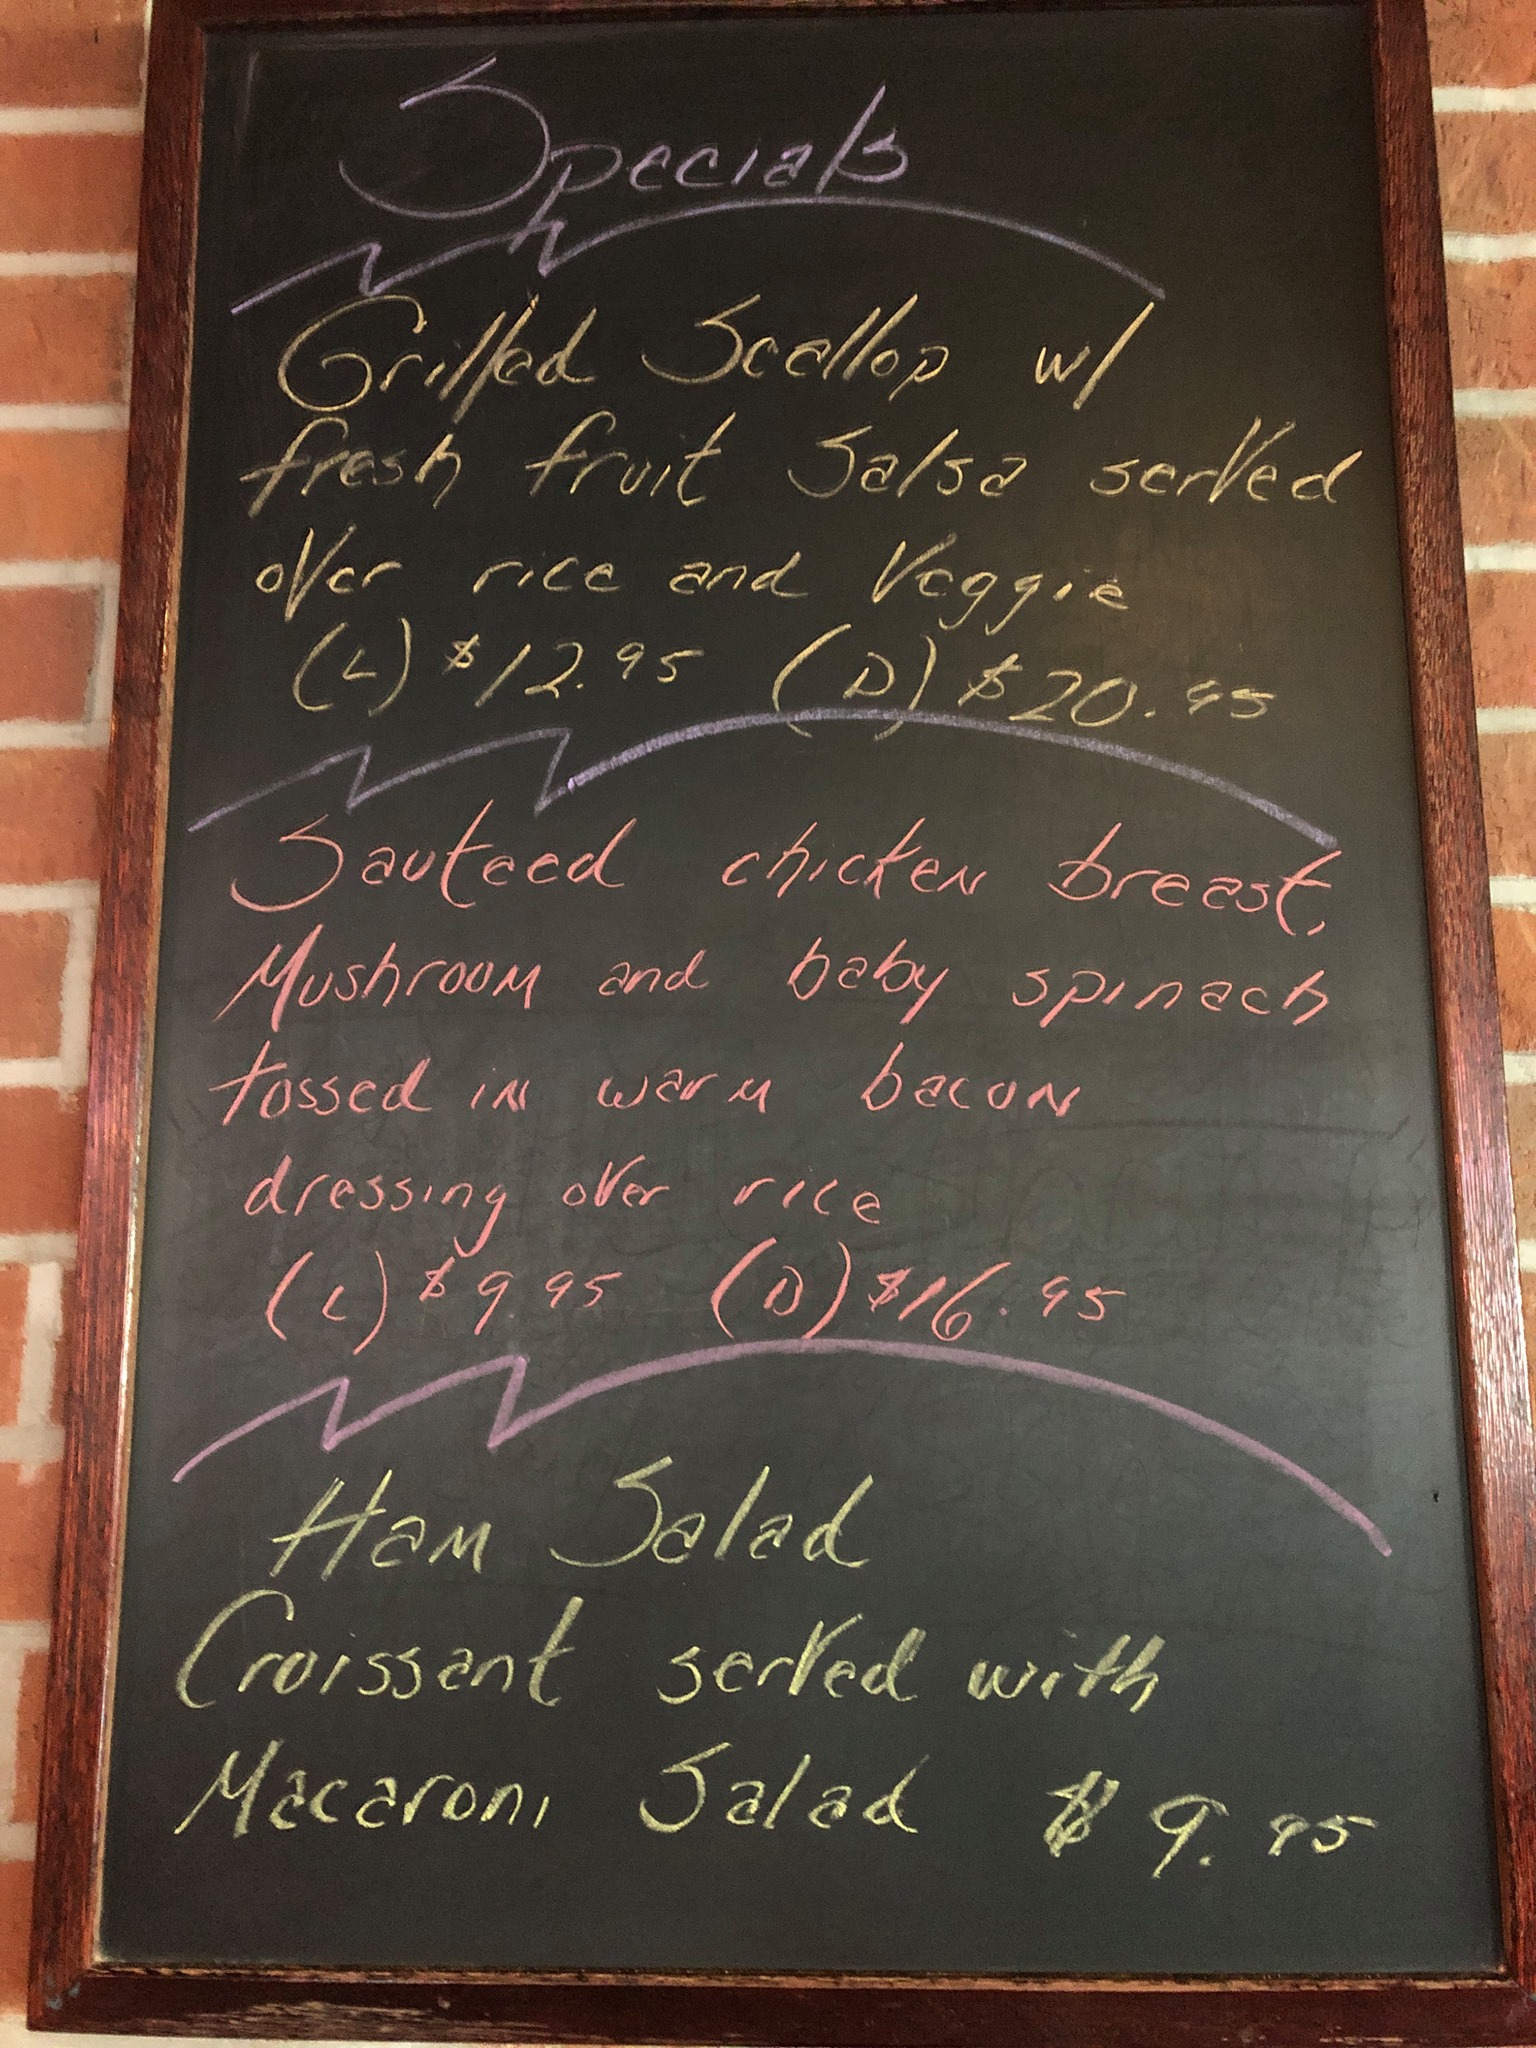 Specials
Grilled Scallop w/
fresh fruit Salsa served
over rice and Veggie
(L) $12.95 (D) $20.95
Sauteed chicken breast,
Mushroom and baby spinach
tossed in warm bacon
dressing over rice
(L) $9.95 (D) $16.95
Ham Salad
Croissant served with
Macaroni Salad $9.95